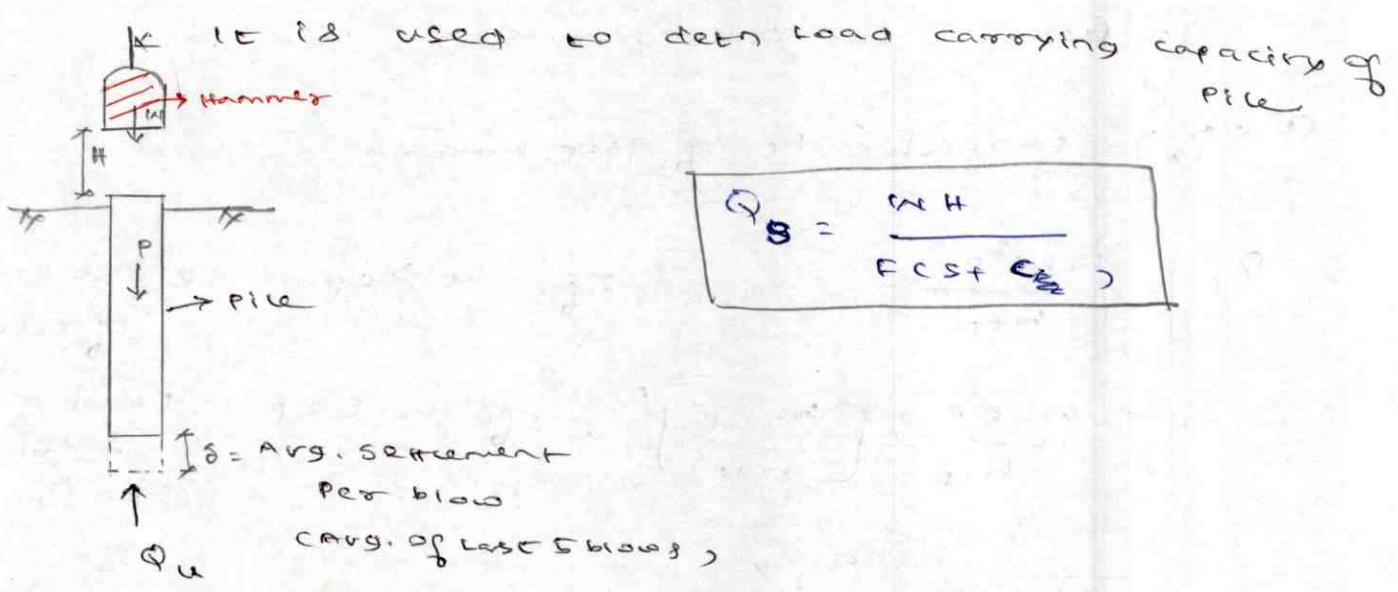 It is used to detn load carrying capacity of
pile
Hammer
W
H
P
pile
Q_s = WH / F(S + C)
δ = Avg. settlement
per blow
(Avg. of last 5 blows)
Qu